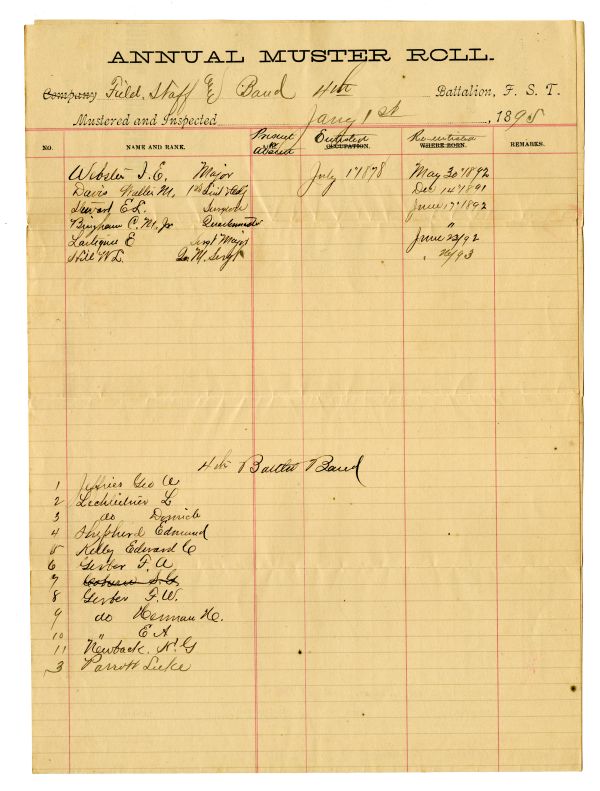 ANNUAL MUSTER ROLL.
Company Field, Staff & Band 4th Battalion, F. S. T.
Mustered and Inspected Jany 1st, 1895
NO. NAME AND RANK. Present or Absent Enlisted OCCUPATION. Re-enlisted WHERE BORN. REMARKS.
Webster J. E. Major July 1 1878 May 30 1892
Davis Walter M. 1st Lieut Dec 14 1891
Stewart E. L. Surgeon June 17 1892
Bingham C. M. Jr Quartermaster "
Lartigue E Sergt Major June 22/92
Hill W L. Qr. M. Sergt " 26/93
4th Battn Band
1 Jeffries Geo A
2 Lechleitner L
3 do
4 Shepherd Edmund
5 Kelly Edward C
6 Gerber F. A
7
8 Gerber F. W.
9 do Herman H.
10 " E A
11 Newback
3 Parrott Luke